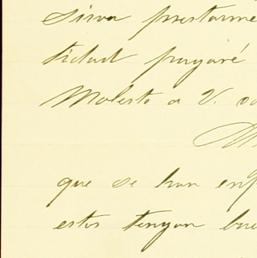 sirva prestarme
tidad pagaré
Molesto a V.
que se han enf
estos tengan bue